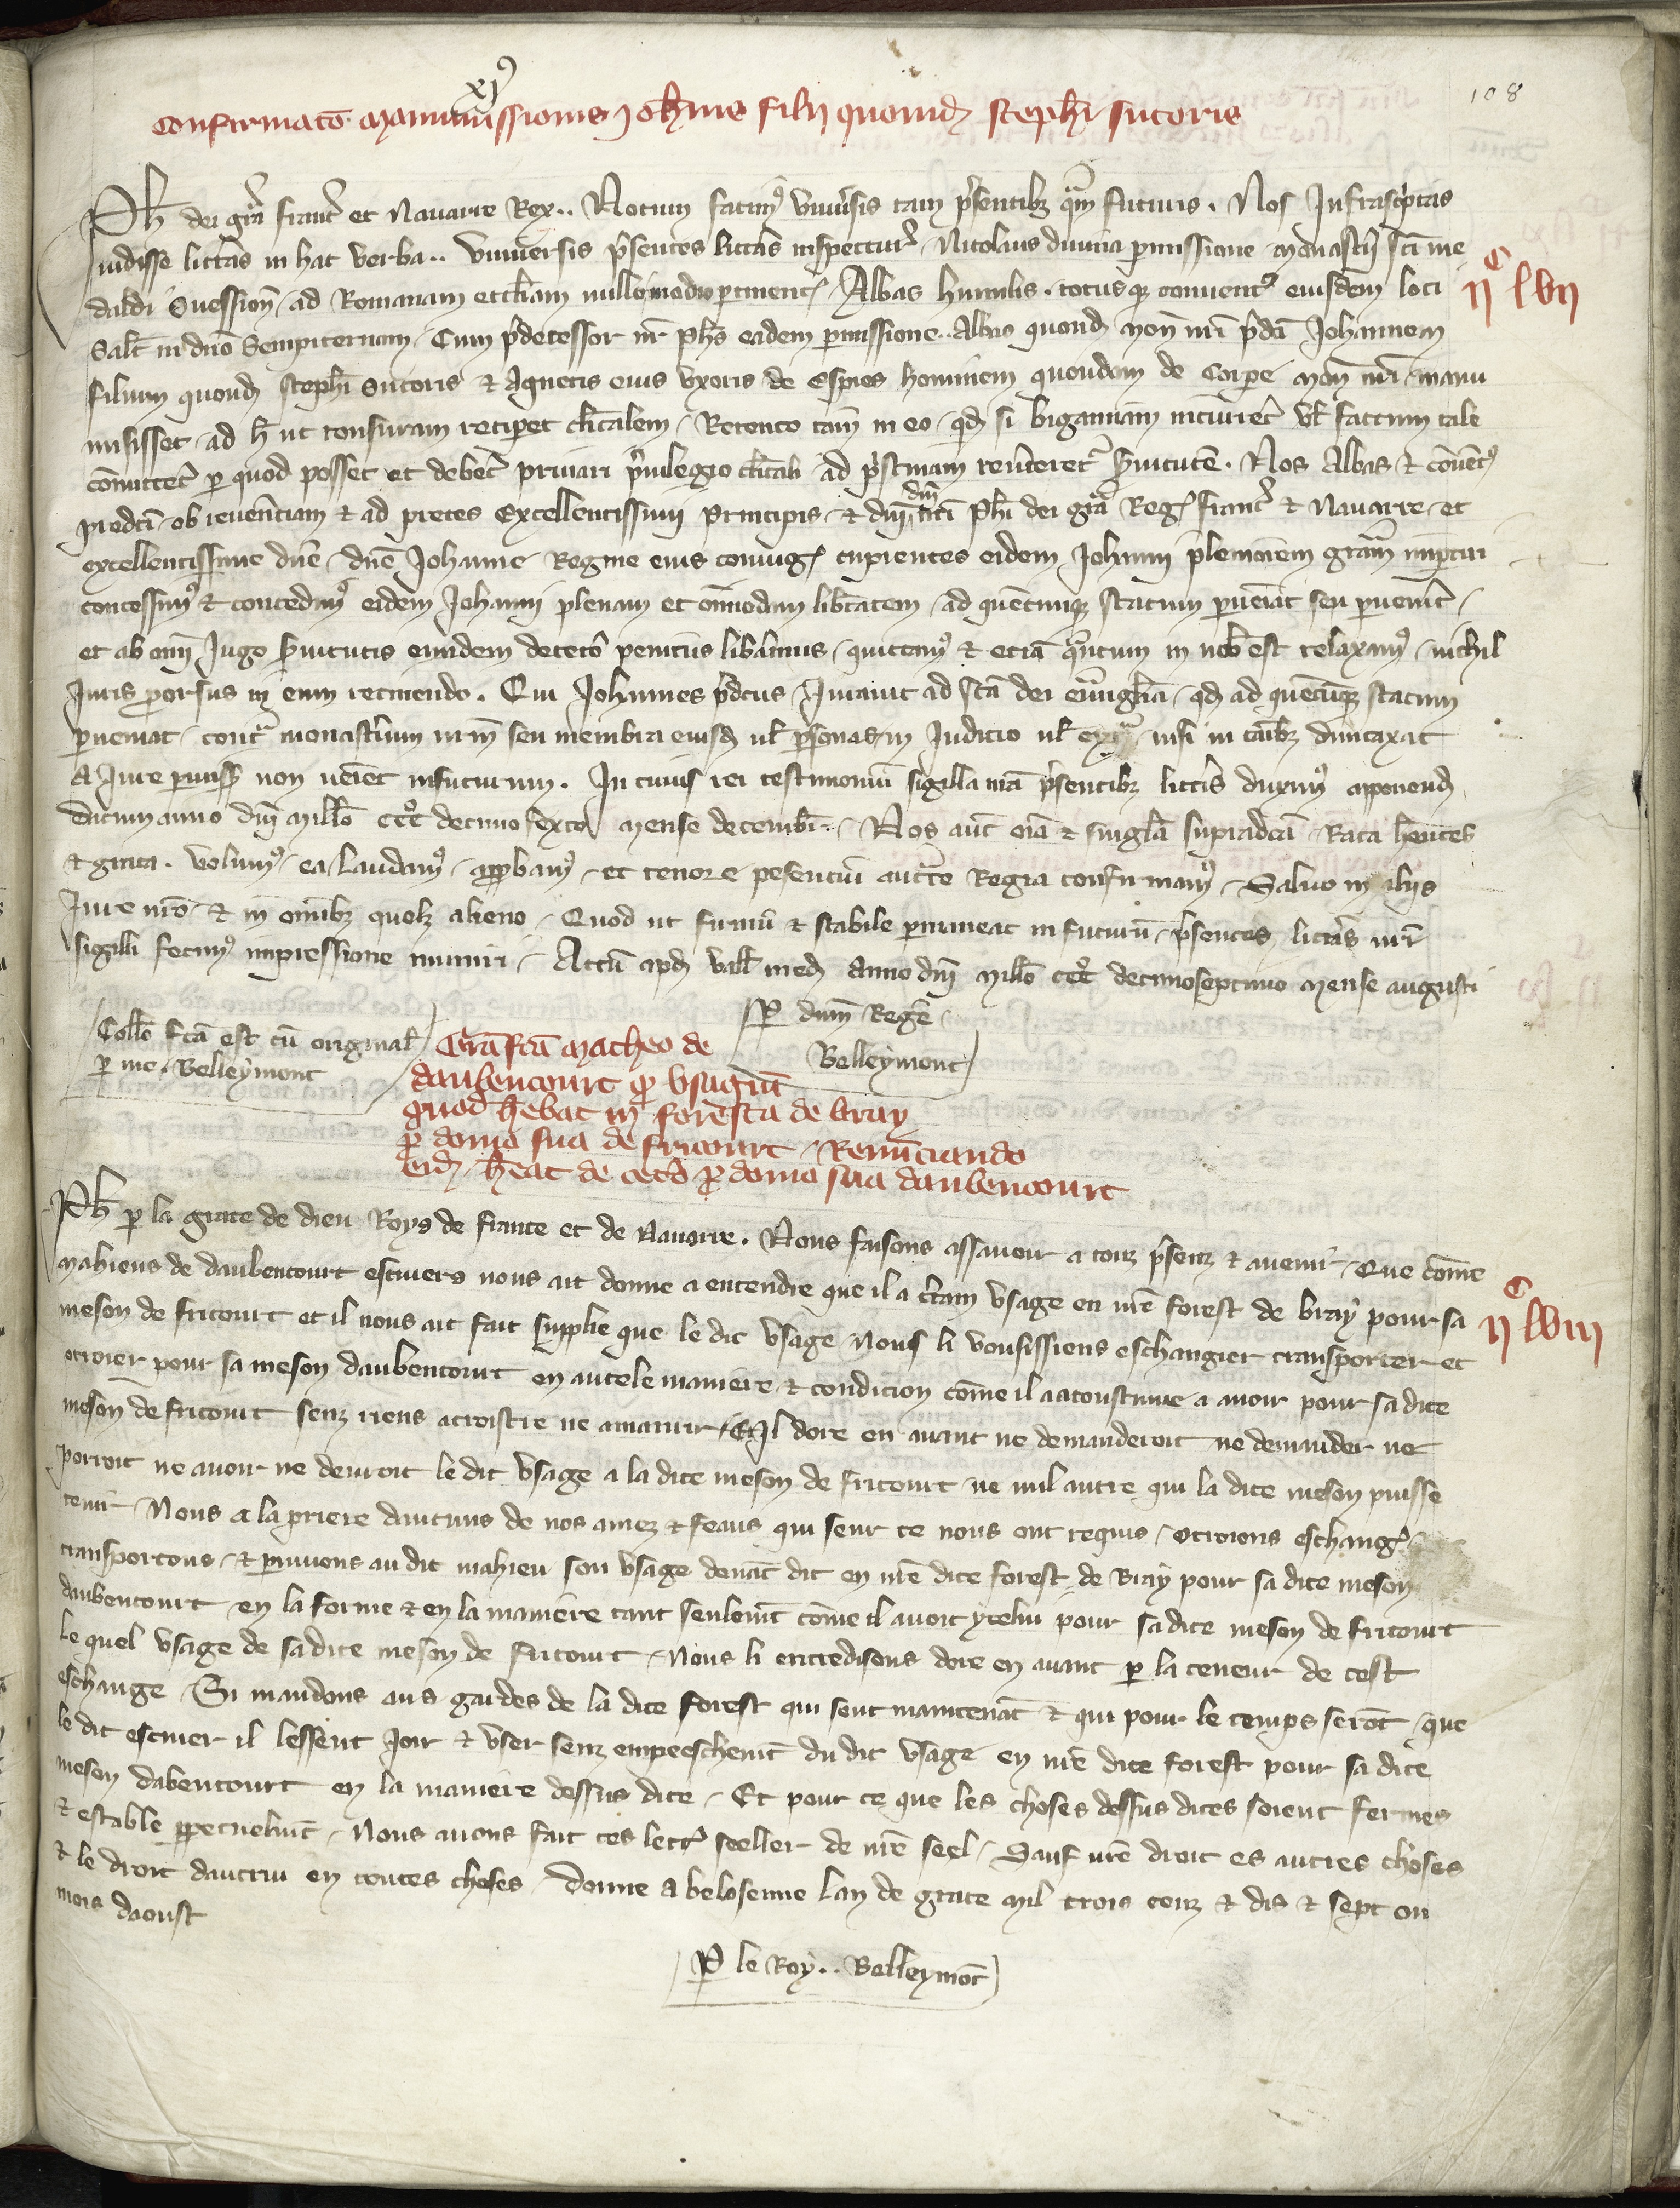 108
xjꝰ
Confirmatō manumissionis Joh̄nis filij quond̄ steph̄i sutoris
Ph̄ dei gr̄a franc̄ et Nauarre Rex.. Notum facimꝰ vniu̾sis tam p̄sentibȝ qͣm futuris. Nos Infrasc̾ptas
vidisse litt̾as in hac verba.. Vniuersis p̄sentes litt̾as inspectur̾ Nicolaus diuina permissione monast̾ij sc̄i me
dardi Suession̄ ad Romanam eccl̄iam nullo modio pertinent̾ Abbas humilis. totusqȝ conuentꝰ eiusdem loci
ijᶜ lvij
Salt̄ in dn̄o Sempiternam. Cum p̄decessor nr̄ Ph̄s eadem permissione.. Abbas quond̄ mon̄ nr̄i p̄dc̄i Johannem
filium quond̄ steph̄i Sutoris & Agnetis eius vxoris de Espies hominem quendam de corpore mon̄ nr̄i manu
misisset ad h̄ ut tonsuram recip̄et cl̄icalem, Retento tam̄ in eo qd̄ si bigamiam incurret̾ vl̄ factum tale
cōmittet̾ per quod posset et deb̾et p̾uari p̾uilegio cl̄icali ad p̾stinam reu̾teret̾ s̾uitutē. Nos Abbas & cōuētꝰ
predc̄i ob reu̾enciam & ad preces Excellentissimi Principis & dn̄i dn̄i nr̄i Ph̄i dei gr̄a Reg̾ franc̄ & Nauarre et
excellentissime dn̄e dn̄e Johanne Regine eius coniug̾ cupientes eidem Joh̄anni pleniorem gr̄am imp̾tiri
concessimꝰ & concedimꝰ eidem Johanni plenam et om̄imodam lib̾tatem ad quēcunqȝ statum p̾uen̾iat seu p̾uen̾it
et ab om̄i Jugo s̾uitutis eundem deceto̾ penitus lib̾amus, quittamꝰ & etiā qͣntum in nob̄ est relaxamꝰ nichil
Juris prorsus in eum retinendo. Qui Johannes p̄dc̄us Jurauit ad sc̄a dei eu̾ngl̄ia qd̄ ad quēcūqȝ statum
p̾ueniat contͣ monast̾ium nr̄m seu membra eiusd̄ vl̄ p̾sonas in Judicio vl̄ extͣ nisi in casibȝ dumtaxat
a Jure permiss̄ non ven̾iet infuturum. In cuius rei testimoniū sigilla nr̄a p̄sentibȝ litt̾is duximꝰ apponend̄
Datum anno dn̄i Mill̄o cccͦ decimo sexto mense decembr̄.. Nos aut̄ om̄ia & singl̄a supradc̄a Rata h̄entes
& grata. volumꝰ ea laudamꝰ approbamꝰ et tenore presenciū auct̄te Regia confirmamꝰ, Saluo in alijs
Jure nr̄o & in om̄ibȝ quolȝ alieno. Quod ut firmū & stabile p̾maneat in futurū p̄sentes litt̾as nr̄i
sigilli fecimꝰ impressione muniri. Actū apd̄ vall̄ med̄ Anno dn̄i Mill̄o cccͦ decimoseptimo mense augusti
Per dn̄m Regē
Belleymont
Coll̄o fc̄a est cū original̄
per me Belleymont
Gr̄a fc̄a Matheo de
daubencourt pro vsagiū
quod h̄ebat in foresta de bray
pro domo sua de fricourt Renūciando
eid̄ h̄eat de cet̾o pro domo sua daubencourt
Ph̄ par la grace de dieu Roys de france et de Nauarre. Nous faisons assauoir a touz p̄senz & auenir. Que cōme
Mahieus de daubencourt escuiers nous ait donne a entendre que il a c̾tain vsage en nr̄e forest de bray pour sa
ijᶜ lviij
meson de fricourt et il nous ait fait supplie que le dit vsage nous li vousissiens eschangier transporter et
otroier pour sa meson daubencourt en autele maniere & condicion cōme il a acoustume a auoir pour sa dite
meson de fricourt senz riens acroistre ne amanrir. Et Il dore en auant ne demanderoit ne demander ne
porroit ne auoir ne deuroit le dit vsage a la dite meson de fricourt ne nul autre qui la dite meson puisse
tenir. Nous a la priere daucuns de nos amez & feaus qui seur ce nous ont requis, otroions eschang̾
transportons & p̾muons au dit mahieu son vsage deuāt dit en nr̄e dite forest de Bray pour sa dite meson
daubencourt en la forme & en la maniere tant seulemt̄ cōme il auoit ycelui pour sa dite meson de fricourt
le quel vsage de sa dite meson de fricourt Nous li entredisons dore en auant par la teneur de cest
eschange. Si mandons aus gardes de la dite forest qui sont maintenāt & qui pour le temps serōt, que
le dit escuier il lessent Joir & vser senz empeeschemt̄ du dit vsage en nr̄e dite forest pour sa dite
meson dabencourt en la maniere dessus dite. Et pour ce que les choses dessus dites soient fermes
& estable perpetuelmt̄, Nous auons fait ces lectr̾ seeller de nr̄e seel, Sauf nr̄e droit es autres choses
& le droit dautrui en toutes choses. Donne a belosenne lan de grace mil trois cenz & dis & sept ou
mois daoust
Par le Roy.. Belleymōt